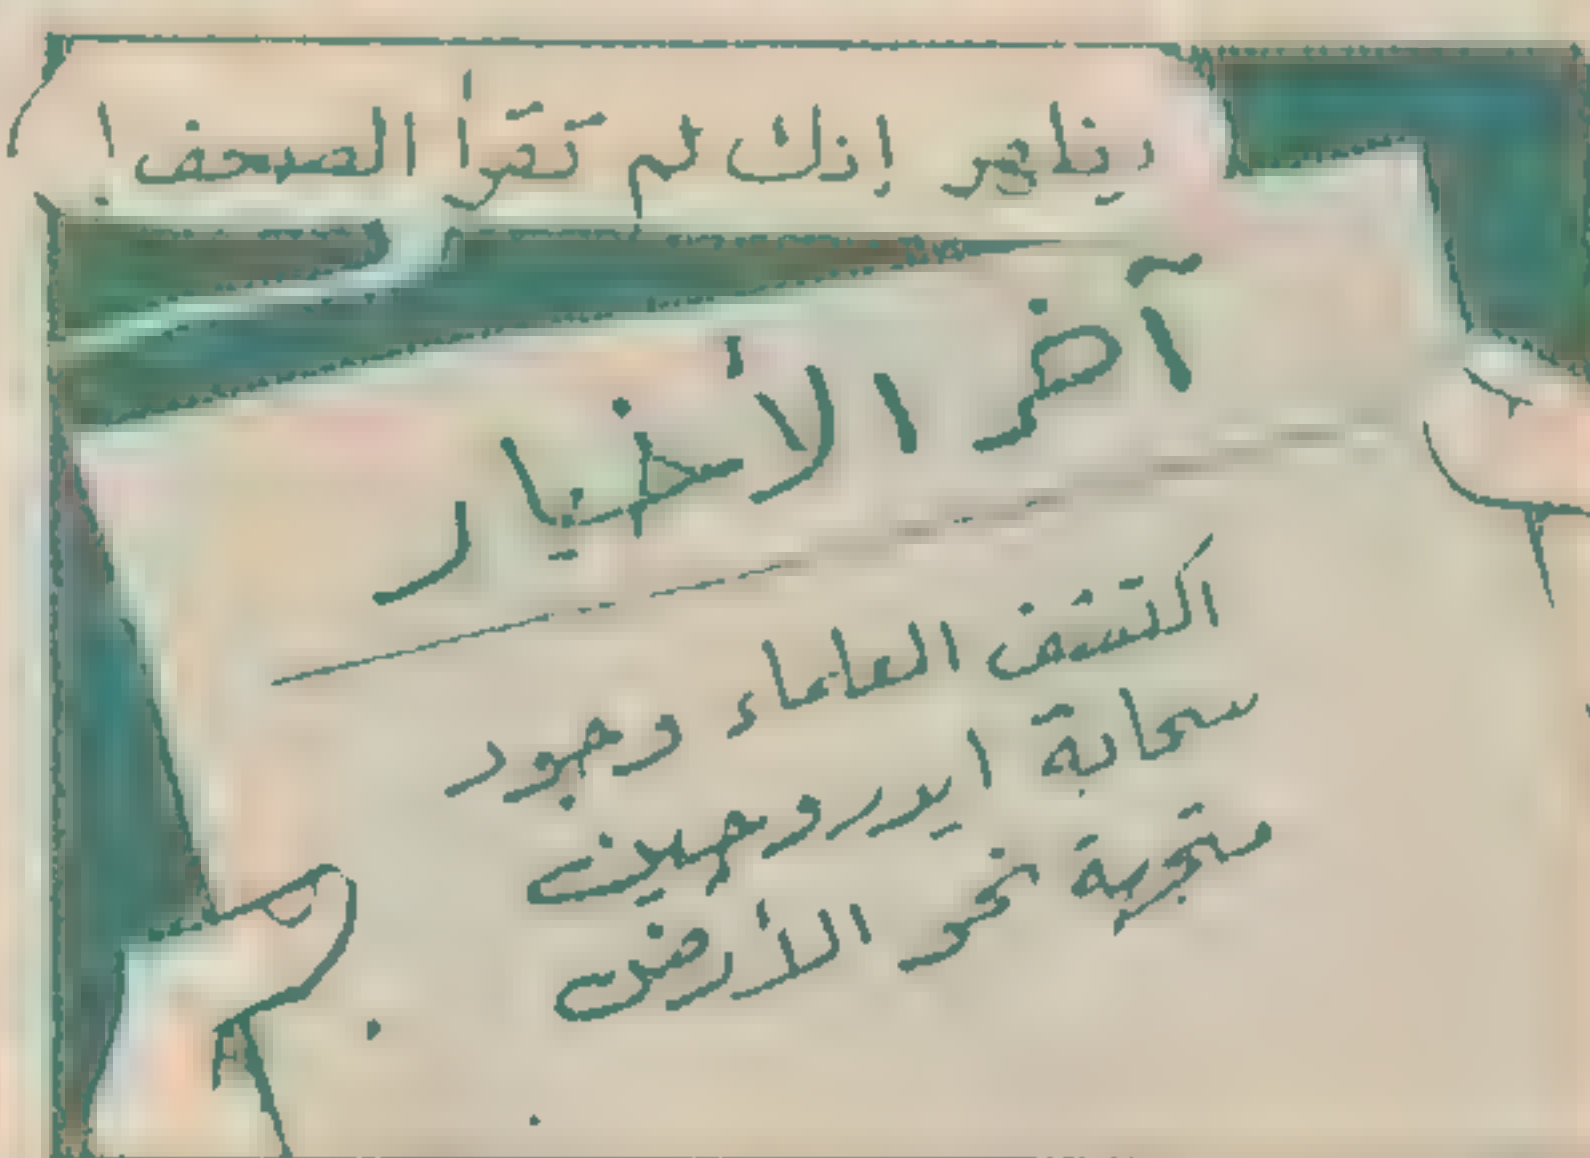 يظهر إنك لم تقرأ الصحف !
آخر الأخبار
اكتشف العلماء وجود
سحابة ايدروجين
متجهة نحو الأرض